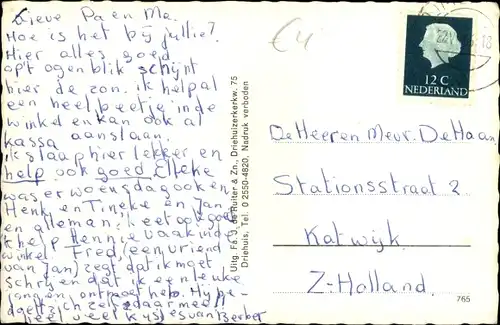 Lieve Pa en Ma.
Hoe is het bij jullie?
Hier alles goed
op't ogenblik schijnt
hier de zon. ik help al
een heel beetje in de
winkel en kan ook al
kassa aanslaan.
ik slaap hier lekker en
help ook goed Elleke
was er woensdag ook en
Henk en Tineke en Jan
en allemaal
ik help Hennie vaak in de
winkel. Fred, (een vriend
van Jan) zegt dat ik moet
schrijven dat ik een leuke
jongen ontmoet heb. Hij
zelf daarmee
heel veel kusjes van Berber
Uitg. Fa. J. de Ruiter & Zn., Driehuizerkerkw. 75
Driehuis, Tel. 0 2550-4820, Nadruk verboden
€4
12 C
NEDERLAND
De Heer en Mevr. De Haan
Stationsstraat 2
Katwijk
Z-Holland.
765